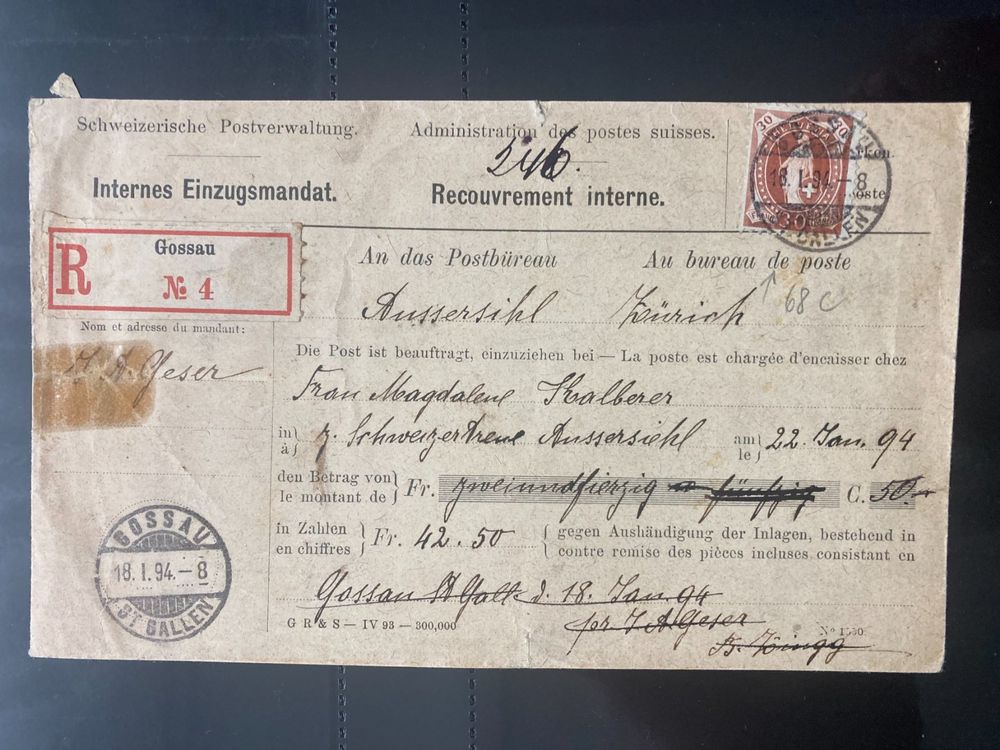 Schweizerische Postverwaltung. Administration des postes suisses.
246.
Internes Einzugsmandat. Recouvrement interne.
30 30
18.I.94.–8
ST GALLEN
R Gossau
№ 4
An das Postbüreau Au bureau de poste
68 C
Aussersihl Zürich
Nom et adresse du mandant:
Die Post ist beauftragt, einzuziehen bei — La poste est chargée d'encaisser chez
J. A. Geser
Frau Magdalene Kalberer
in à z. Schweizertreue Aussersiehl am le 22 Jan. 94
den Betrag von le montant de Fr. zweiundfierzig fünfzig C. 50.-
in Zahlen en chiffres Fr. 42.50 gegen Aushändigung der Inlagen, bestehend in
contre remise des pièces incluses consistant en
GOSSAU
18.I.94.–8
ST GALLEN
Gossau St Gall. d. 18. Jan 94
G R & S — IV 93 — 300,000 pr J A Geser Nº 1530.